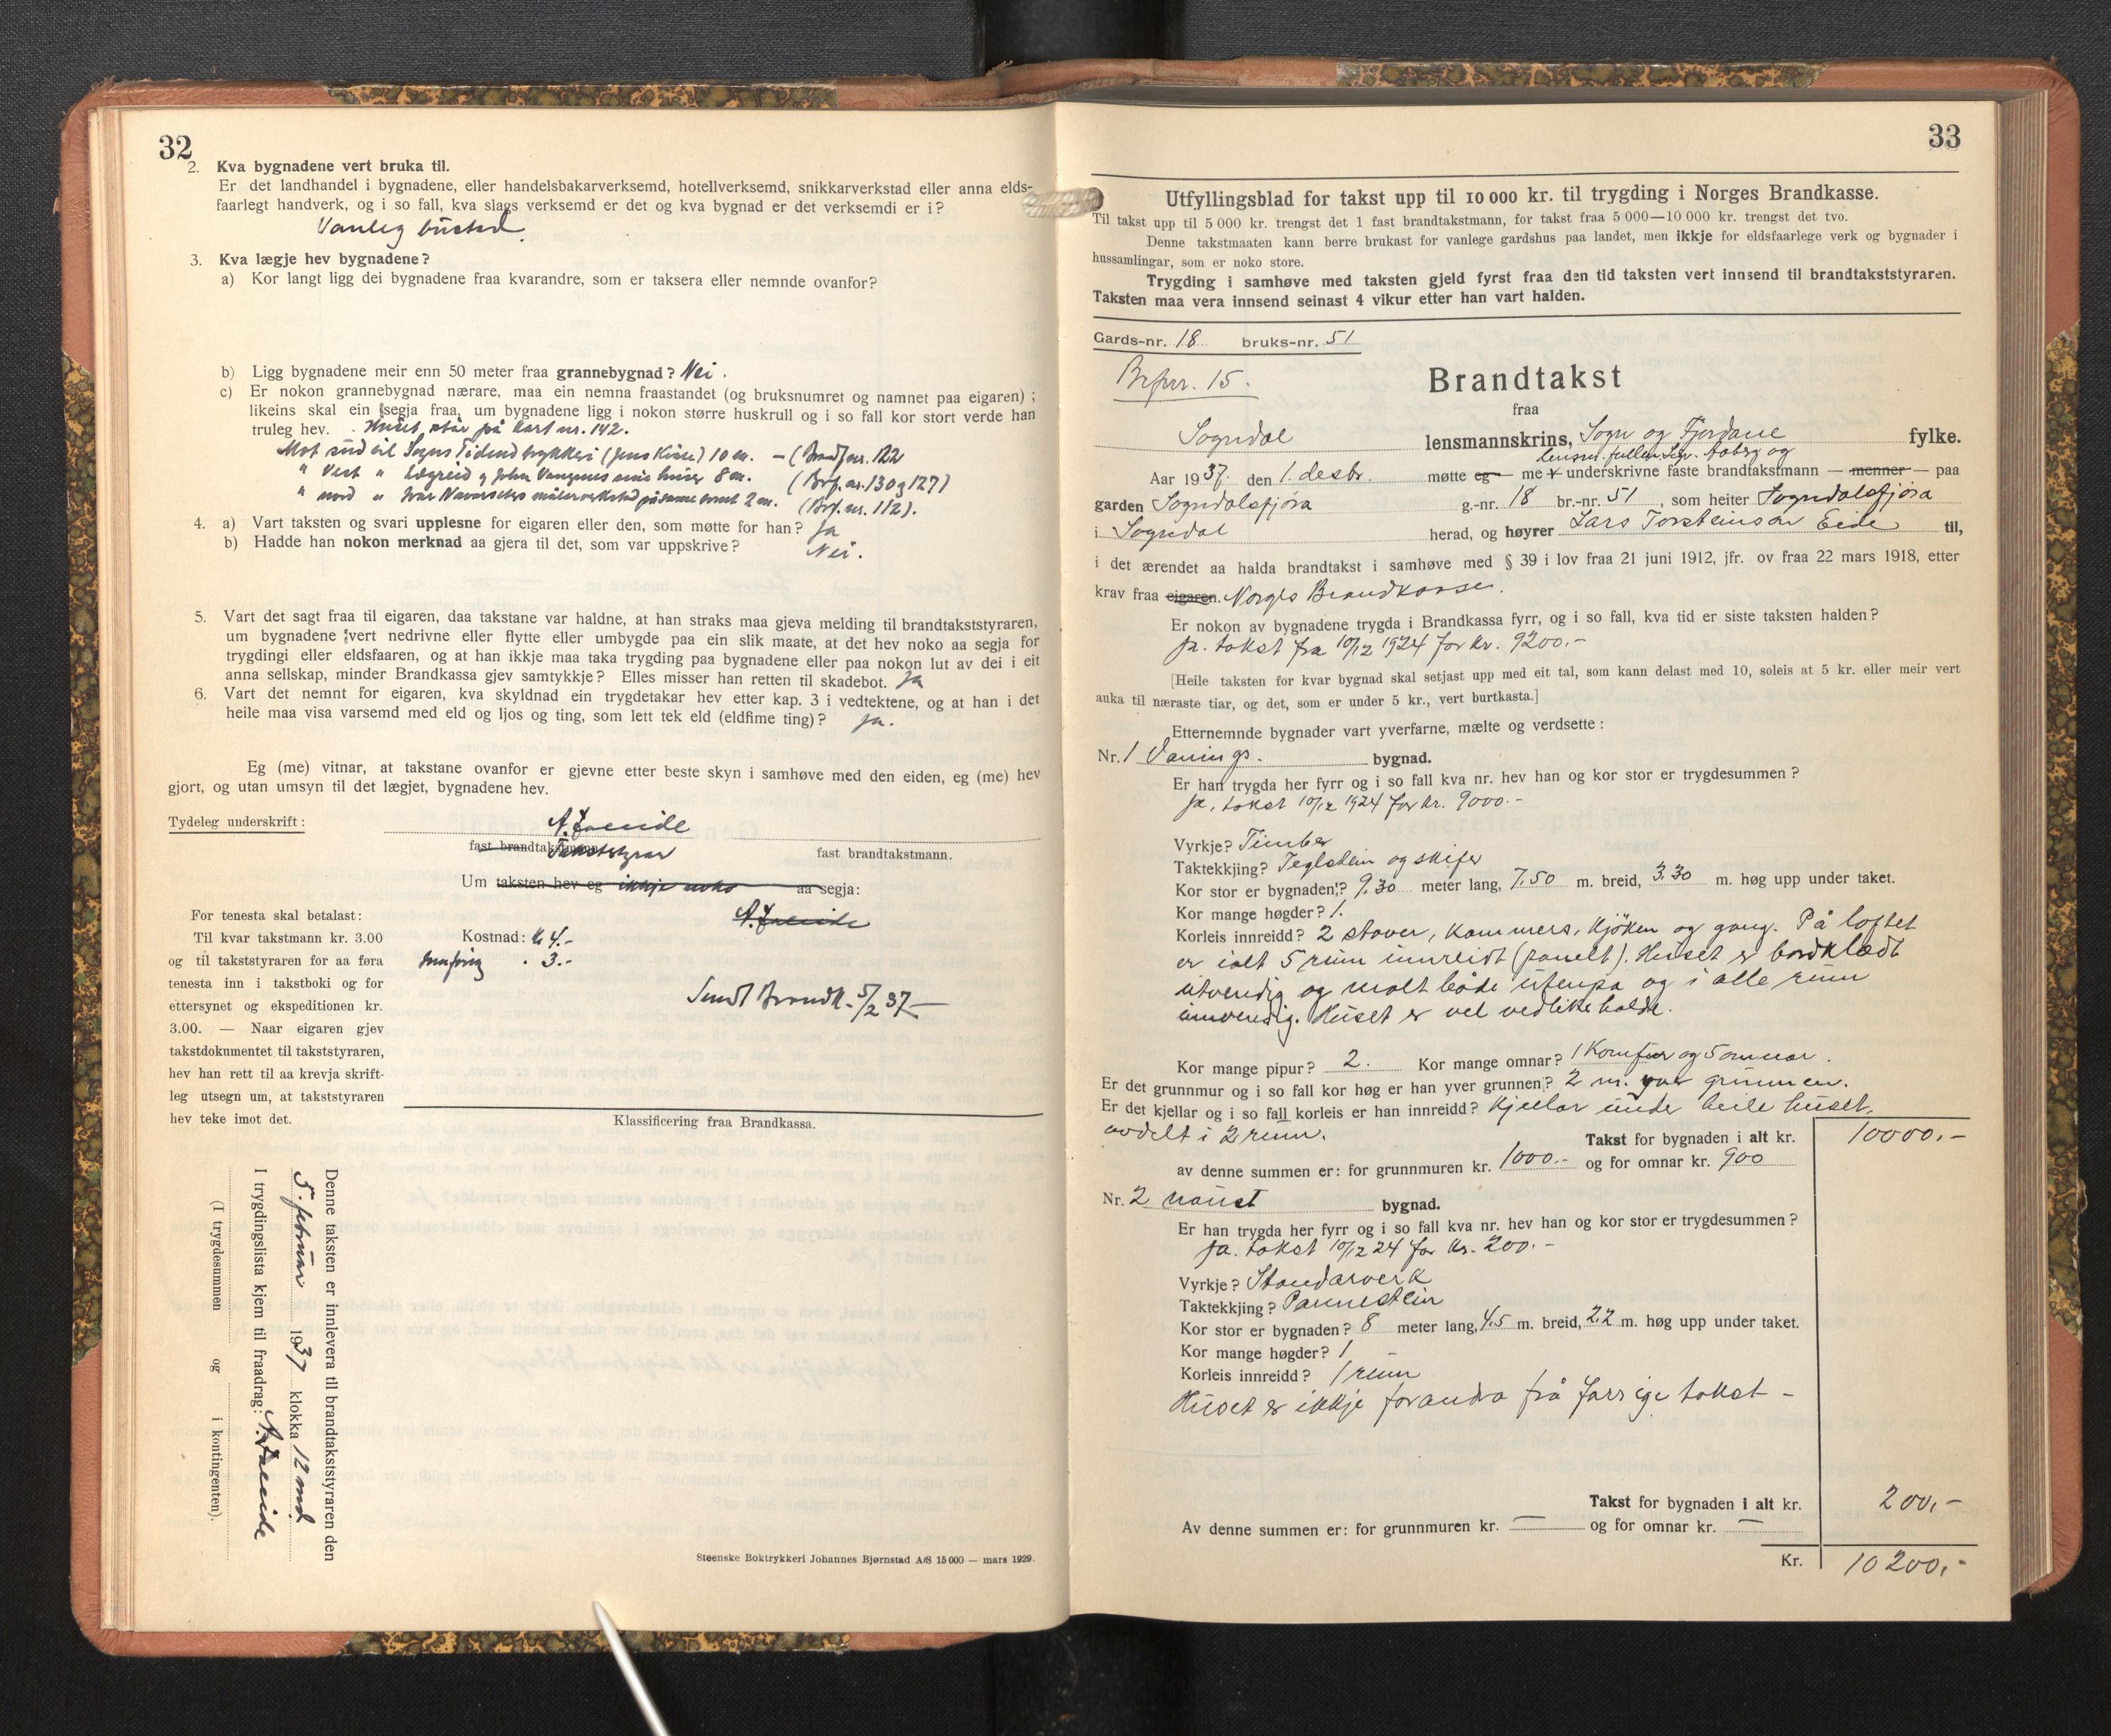 32
2. Kva bygnadene vert bruka til.
Er det landhandel i bygnadene, eller handelsbakarverksemd, hotellverksemd, snikkarverkstad eller anna elds-
faarlegt handverk, og i so fall, kva slags verksemd er det og kva bygnad er det verksemdi er i?
Vanleg bustad.
3. Kva lægje hev bygnadene?
a) Kor langt ligg dei bygnadene fraa kvarandre, som er taksera eller nemnde ovanfor?
b) Ligg bygnadene meir enn 50 meter fraa grannebygnad? Nei.
c) Er nokon grannebygnad nærare, maa ein nemna fraastandet (og bruksnumret og namnet paa eigaren) ;
likeins skal ein segja fraa, um bygnadene ligg i nokon større huskrull og i so fall kor stort verde han
truleg hev. Huset står på Kart nr. 142.
Mot sud til Sogns Tidend trykkeri (Jens Kvåle) 10 m. — (Brandf nr. 122
" Vest " Lægreid og John Vangsnes sine huser 8 m. (Brf. nr. 130 og 127)
" nord " Ivar Navarsetes målerverkstad på same tomt 2 m. (Brf. nr. 112).
4. a) Vart taksten og svari upplesne for eigaren eller den, som møtte for han? Ja
b) Hadde han nokon merknad aa gjera til det, som var uppskrive? Nei.
5. Vart det sagt fraa til eigaren, daa takstane var haldne, at han straks maa gjeva melding til brandtakststyraren,
um bygnadene vert nedrivne eller flytte eller umbygde paa ein slik maate, at det hev noko aa segja for
trygdingi eller eldsfaaren, og at han ikkje maa taka trygding paa bygnadene eller paa nokon lut av dei i eit
anna sellskap, minder Brandkassa gjev samtykkje? Elles misser han retten til skadebot. Ja
6. Vart det nemnt for eigaren, kva skyldnad ein trygdetakar hev etter kap. 3 i vedtektene, og at han i det
heile maa visa varsemd med eld og ljos og ting, som lett tek eld (eldfime ting)? Ja.
Eg (me) vitnar, at takstane ovanfor er gjevne etter beste skyn i samhøve med den eiden, eg (me) hev
gjort, og utan umsyn til det lægjet, bygnadene hev.
Tydeleg underskrift:
fast brandtakstmann. Takststyrar fast brandtakstmann.
Um taksten hev eg ikkje noko aa segja:
For tenesta skal betalast:
Til kvar takstmann kr. 3.00
og til takststyraren for aa føra
tenesta inn i takstboki og for
ettersynet og ekspeditionen kr.
3.00. — Naar eigaren gjev
takstdokumentet til takststyraren,
hev han rett til aa krevja skrift-
leg utsegn um, at takststyraren
hev teke imot det.
Kostnad: kr 4.-
Innføring " 3.-
Sendt Brandk. 5/2 37
Klassificering fraa Brandkassa.
Denne taksten er innlevera til brandtakststyraren den
5. februar 1937 klokka 12 md.
I trygdingslista kjem til fraadrag:
(I trygdesummen og i kontingenten).
Steenske Boktrykkeri Johannes Bjørnstad A/S 15 000 — mars 1929.
33
Utfyllingsblad for takst upp til 10 000 kr. til trygding i Norges Brandkasse.
Til takst upp til 5 000 kr. trengst det 1 fast brandtakstmann, for takst fraa 5 000—10 000 kr. trengst det tvo.
Denne takstmaaten kann berre brukast for vanlege gardshus paa landet, men ikkje for eldsfaarlege verk og bygnader i
hussamlingar, som er noko store.
Trygding i samhøve med taksten gjeld fyrst fraa den tid taksten vert innsend til brandtakststyraren.
Taksten maa vera innsend seinast 4 vikur etter han vart halden.
Gards-nr. 18 bruks-nr. 51
Brfnr. 15.
Brandtakst
fraa
Sogndal lensmannskrins, Sogn og Fjordane fylke.
lensm. fullm. Aaberg og
Aar 1937. den 1. desbr. møtte eg — me underskrivne faste brandtakstmann — menner — paa
garden Sogndalsfjøra g.-nr. 18 br.-nr. 51, som heiter Sogndalsfjøra
i Sogndal herad, og høyrer Lars Torsteinson Eide til,
i det ærendet aa halda brandtakst i samhøve med § 39 i lov fraa 21 juni 1912, jfr. ov fraa 22 mars 1918, etter
krav fraa eigaren. Norges Brandkasse.
Er nokon av bygnadene trygda i Brandkassa fyrr, og i so fall, kva tid er siste taksten halden?
Ja. takst fra 10/12 1924 for kr. 9200.-
[Heile taksten for kvar bygnad skal setjast upp med eit tal, som kann delast med 10, soleis at 5 kr. eller meir vert
auka til næraste tiar, og det, som er under 5 kr., vert burtkasta.]
Etternemnde bygnader vart yverfarne, mælte og verdsette :
Nr. 1 Vånings. bygnad.
Er han trygda her fyrr og i so fall kva nr. hev han og kor stor er trygdesummen?
Ja, takst 10/12 1924 for kr. 9000.-
Vyrkje? Timber
Taktekkjing? Teglstein og skifer
Kor stor er bygnaden? 9.30 meter lang, 7.50 m. breid, 3.30 m. høg upp under taket.
Kor mange høgder? 1.
Korleis innreidd? 2 stover, kammers, kjöken og gang. På loftet
er ialt 5 rum innreidt (panelt). Huset er bordklædt
utvendig og malt både utenpa og i alle rum
innvendig. Huset er vel vedlikeholdt.
Kor mange pipur? 2. Kor mange omnar? 1 Komfur og 5 omnar.
Er det grunnmur og i so fall kor høg er han yver grunnen? 2 m. yver grunnen.
Er det kjellar og i so fall korleis er han innreidd? Kjellar under heile huset,
avdelt i 2 rum.
Takst for bygnaden i alt kr. 10000.-
av denne summen er: for grunnmuren kr. 1000.- og for omnar kr. 900
Nr. 2 naust bygnad.
Er han trygda her fyrr og i so fall kva nr. hev han og kor stor er trygdesummen?
Ja. takst 10/12 24 for kr. 200.-
Vyrkje? Standarverk
Taktekkjing? Pannestein
Kor stor er bygnaden? 8 meter lang, 4.5 m. breid, 2.2 m. høg upp under taket.
Kor mange høgder? 1
Korleis innreidd? 1 rum
Huset er ikkje forandra frå forrige takst -
Takst for bygnaden i alt kr. 200,-
Av denne summen er: for grunnmuren kr. — og for omnar kr. —
Kr. 10200,-